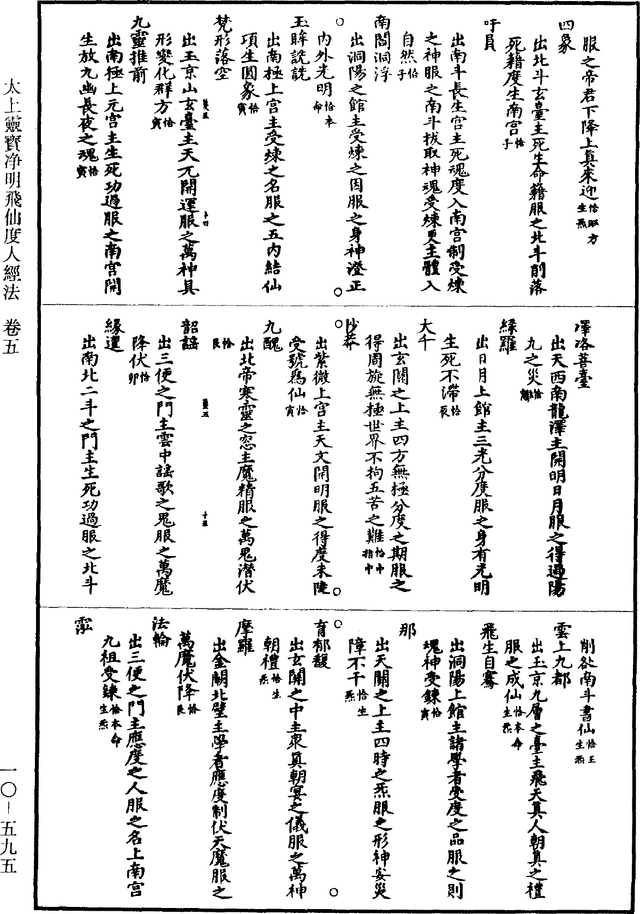 服之帝君下降上真來迎恰取方生炁
四象
出北斗玄臺主死生命籍服之北斗削落
死籍度生南宫恰子
吁員
出南斗長生宫主死魂度入南宫制受煉
之神服之南斗拔取神魂受煉更主體入
自然恰子
南閻洞浮
出洞陽之館主受煉之因服之身神澄正
内外光明恰本命
玉眸詵詵
出南極上宫主受煉之名服之五内結仙
項生圓象恰寅
梵形落空
出玉京山玄臺主天元開運服之萬神具
形變化群方恰寅
九靈推前
出南極上元宫主生死功過服之南宫開
生放九幽長夜之魂恰寅
澤洛菩臺
出天西南龍澤主開明日月服之得過陽
九之災恰
緑羅
出日月上館主三光分度服之身有光明
生死不滯恰辰
大千
出玄關之上主四方無極分度之期服之
得周旋無極世界不拘五苦之難恰中指中
沙莽
出紫微上宫主天文開明服之得度未陞
受號爲仙恰寅
九醜
出北帝寒靈之窓主魔精服之萬鬼潛伏
恰艮
韶謡
出三便之門主雲中謡歌之鬼服之萬魔
降伏恰卯
緣邅
出南北二斗之門主生死功過服之北斗
削欲南斗書仙恰王生炁
雲上九都
出玉京九層之臺主飛天真人朝真之禮
服之成仙恰本命生炁
飛生自騫
出洞陽上館主諸學者受度之品服之則
魂神受鍊恰寅
那
出天關之上主四時之炁服之形神安災
障不干恰生炁
育郁馥
出玄關之中主衆真朝宴之儀服之萬神
朝禮恰生炁
摩羅
出金闕北壁主學者應度制伏天魔服之
萬魔伏降恰艮
法輪
出三便之門主應度之人服之名上南宫
九祖受鍊恰本命生炁
太上靈寶净明飛仙度人經法 卷五
一〇—五九五